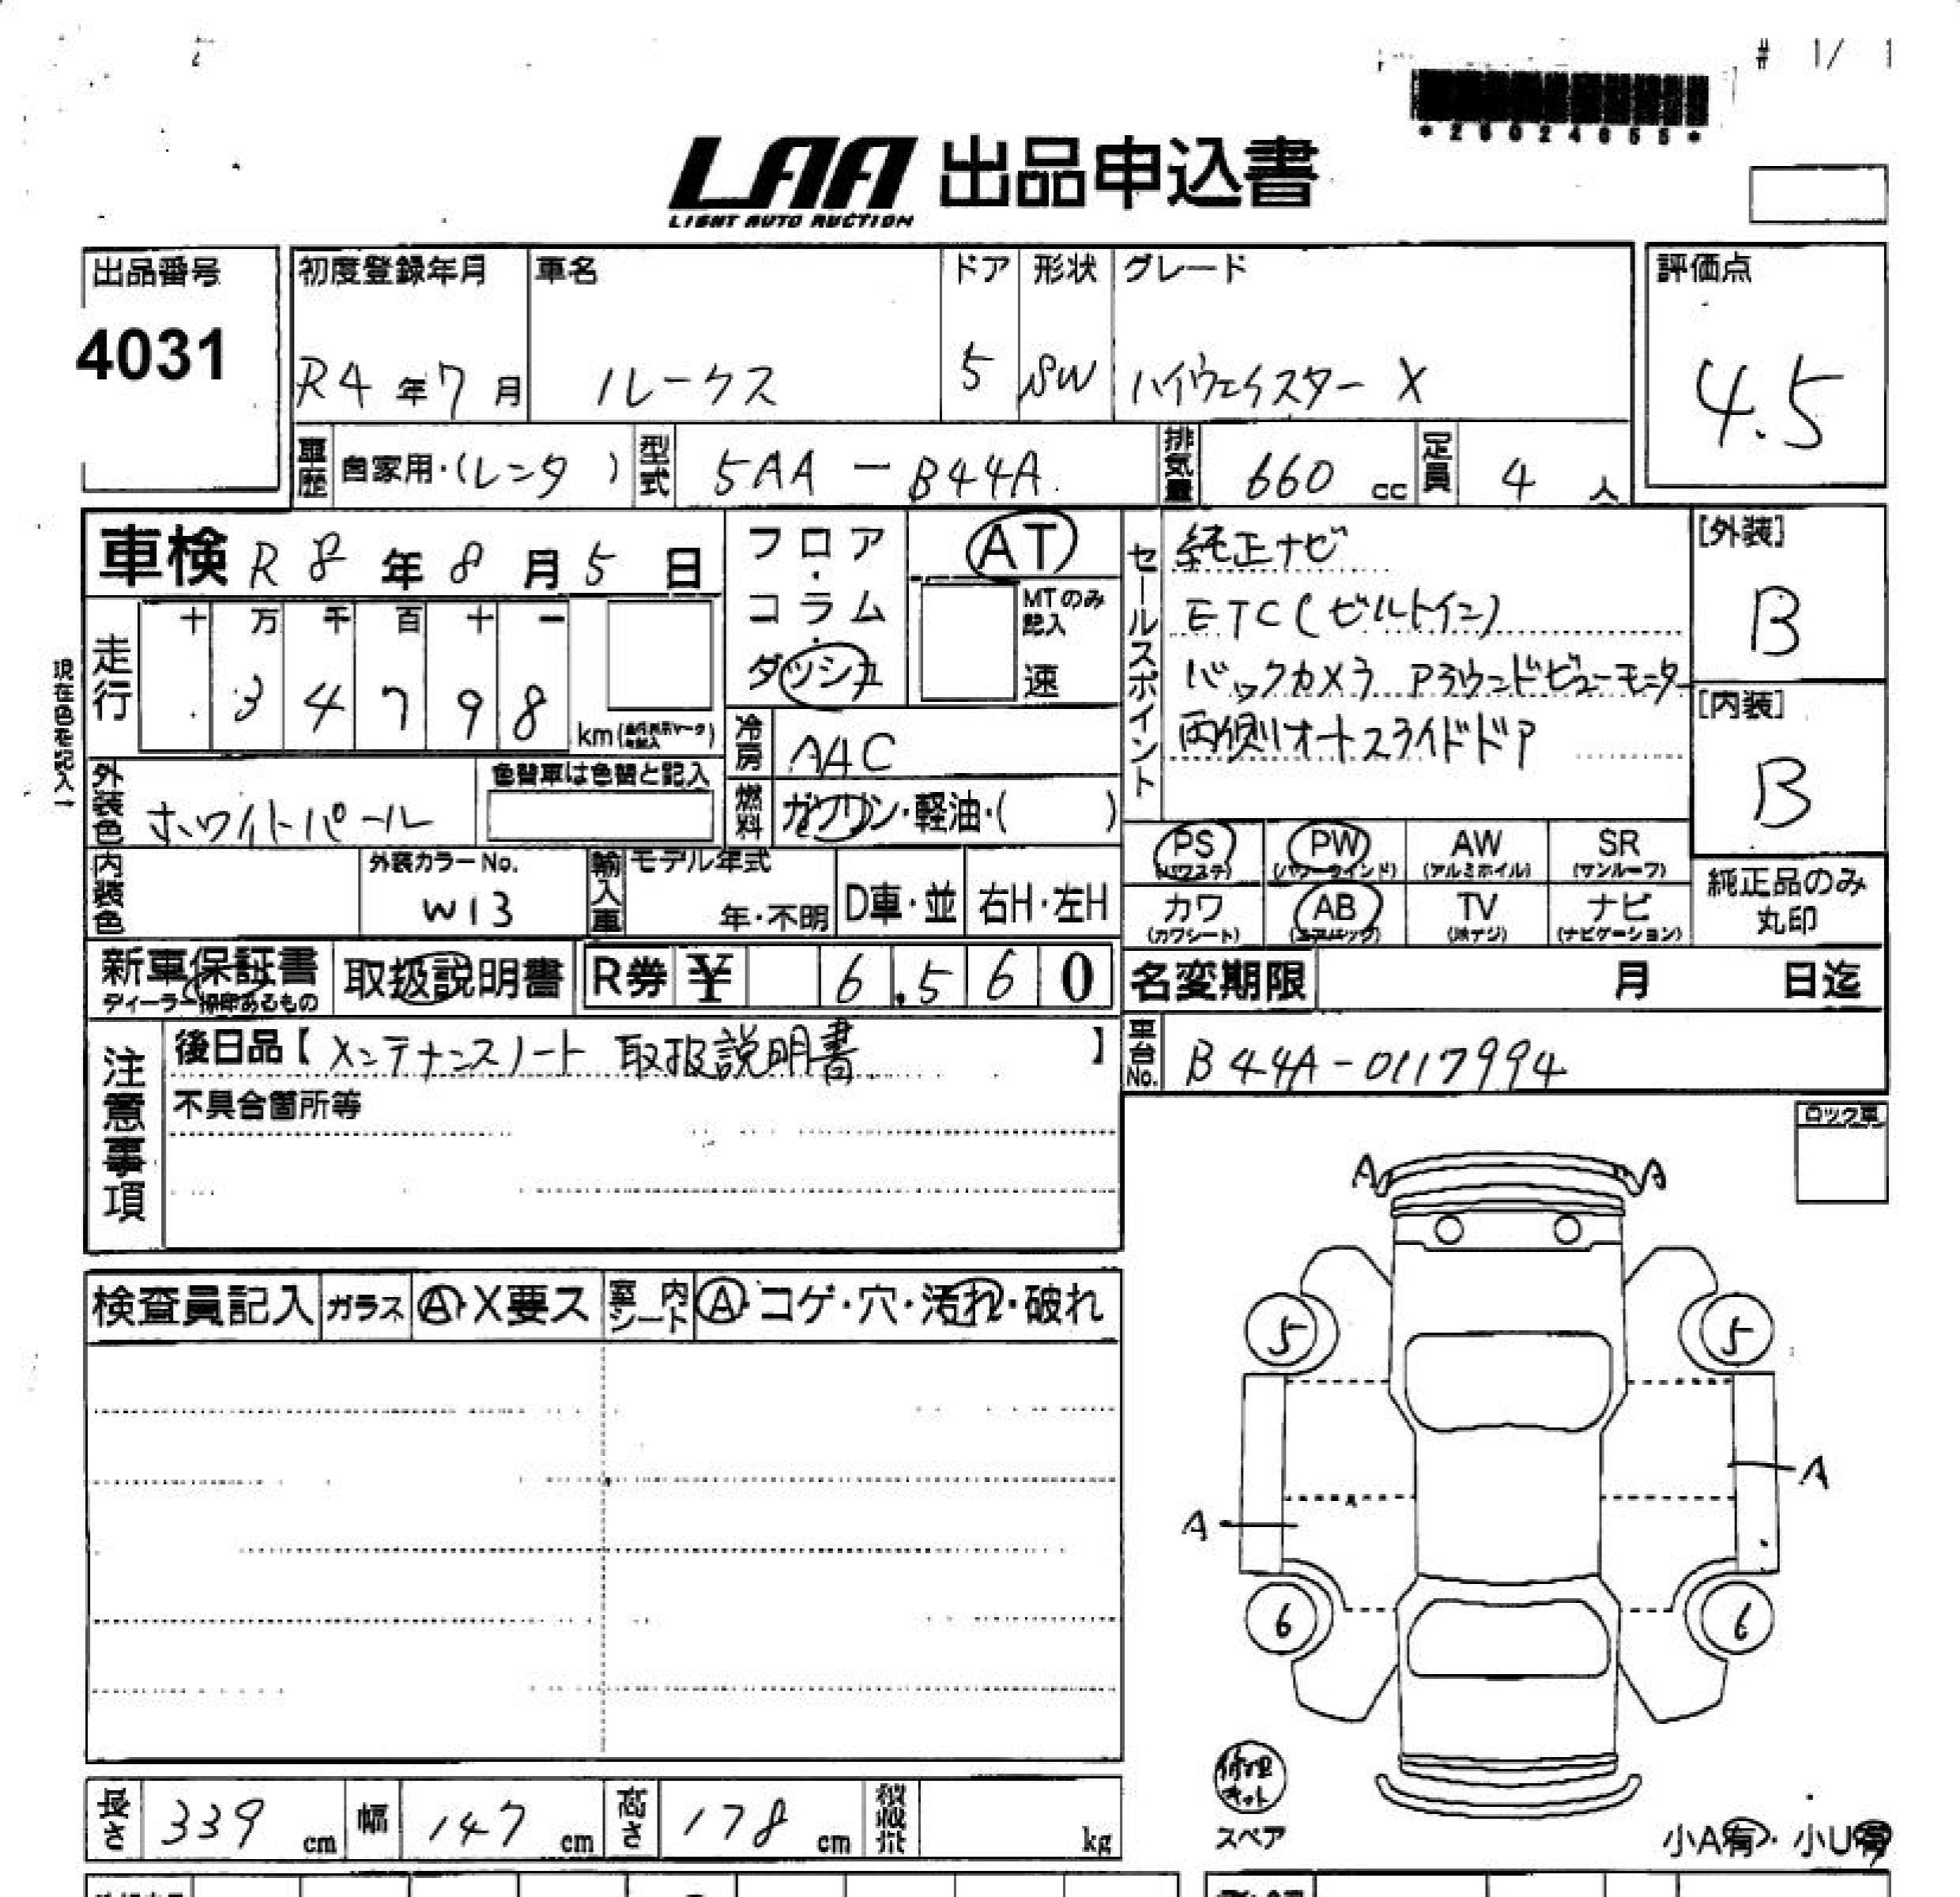 # 1/ 1
*28024655*
LAA 出品申込書
LIGHT AUTO AUCTION
出品番号
4031
初度登録年月
R4年7月
車名
ルークス
ドア
5
形状
SW
グレード
ハイウェイスター X
評価点
4.5
車歴 自家用・(レンタ )
型式 5AA - B44A
排気量 660 cc
定員 4 人
車検 R8年8月5日
現在色を記入→
走行
十 万 千 百 十 一
3 4 7 9 8 km
フロア・コラム・ダッシュ
AT
MTのみ記入
速
冷房 AAC
燃料 ガソリン・軽油・( )
セールスポイント
純正ナビ
ETC(ビルトイン)
バックカメラ アラウンドビューモニター
両側オートスライドドア
[外装]
B
[内装]
B
外装色 ホワイトパール
色替車は色替と記入
内装色
外装カラーNo.
W13
輸入車
モデル年式
年・不明
D車・並
右H・左H
PS (パワステ)
PW (パワーウインド)
AW (アルミホイル)
SR (サンルーフ)
カワ (カワシート)
AB (エアバック)
TV (地デジ)
ナビ (ナビゲーション)
純正品のみ
丸印
新車保証書
ディーラー捺印あるもの
取扱説明書
R券 ¥ 6,560
名変期限 月 日迄
車台No. B44A-0117994
注意事項
後日品【メンテナンスノート 取扱説明書 】
不具合箇所等
ロック車
検査員記入
ガラス A・X要ス
室内シート A・コゲ・穴・汚れ・破れ
A A
5 5
A
A
6 6
修理キット
スペア
小A有・小U有
長さ 339 cm
幅 147 cm
高さ 178 cm
kg